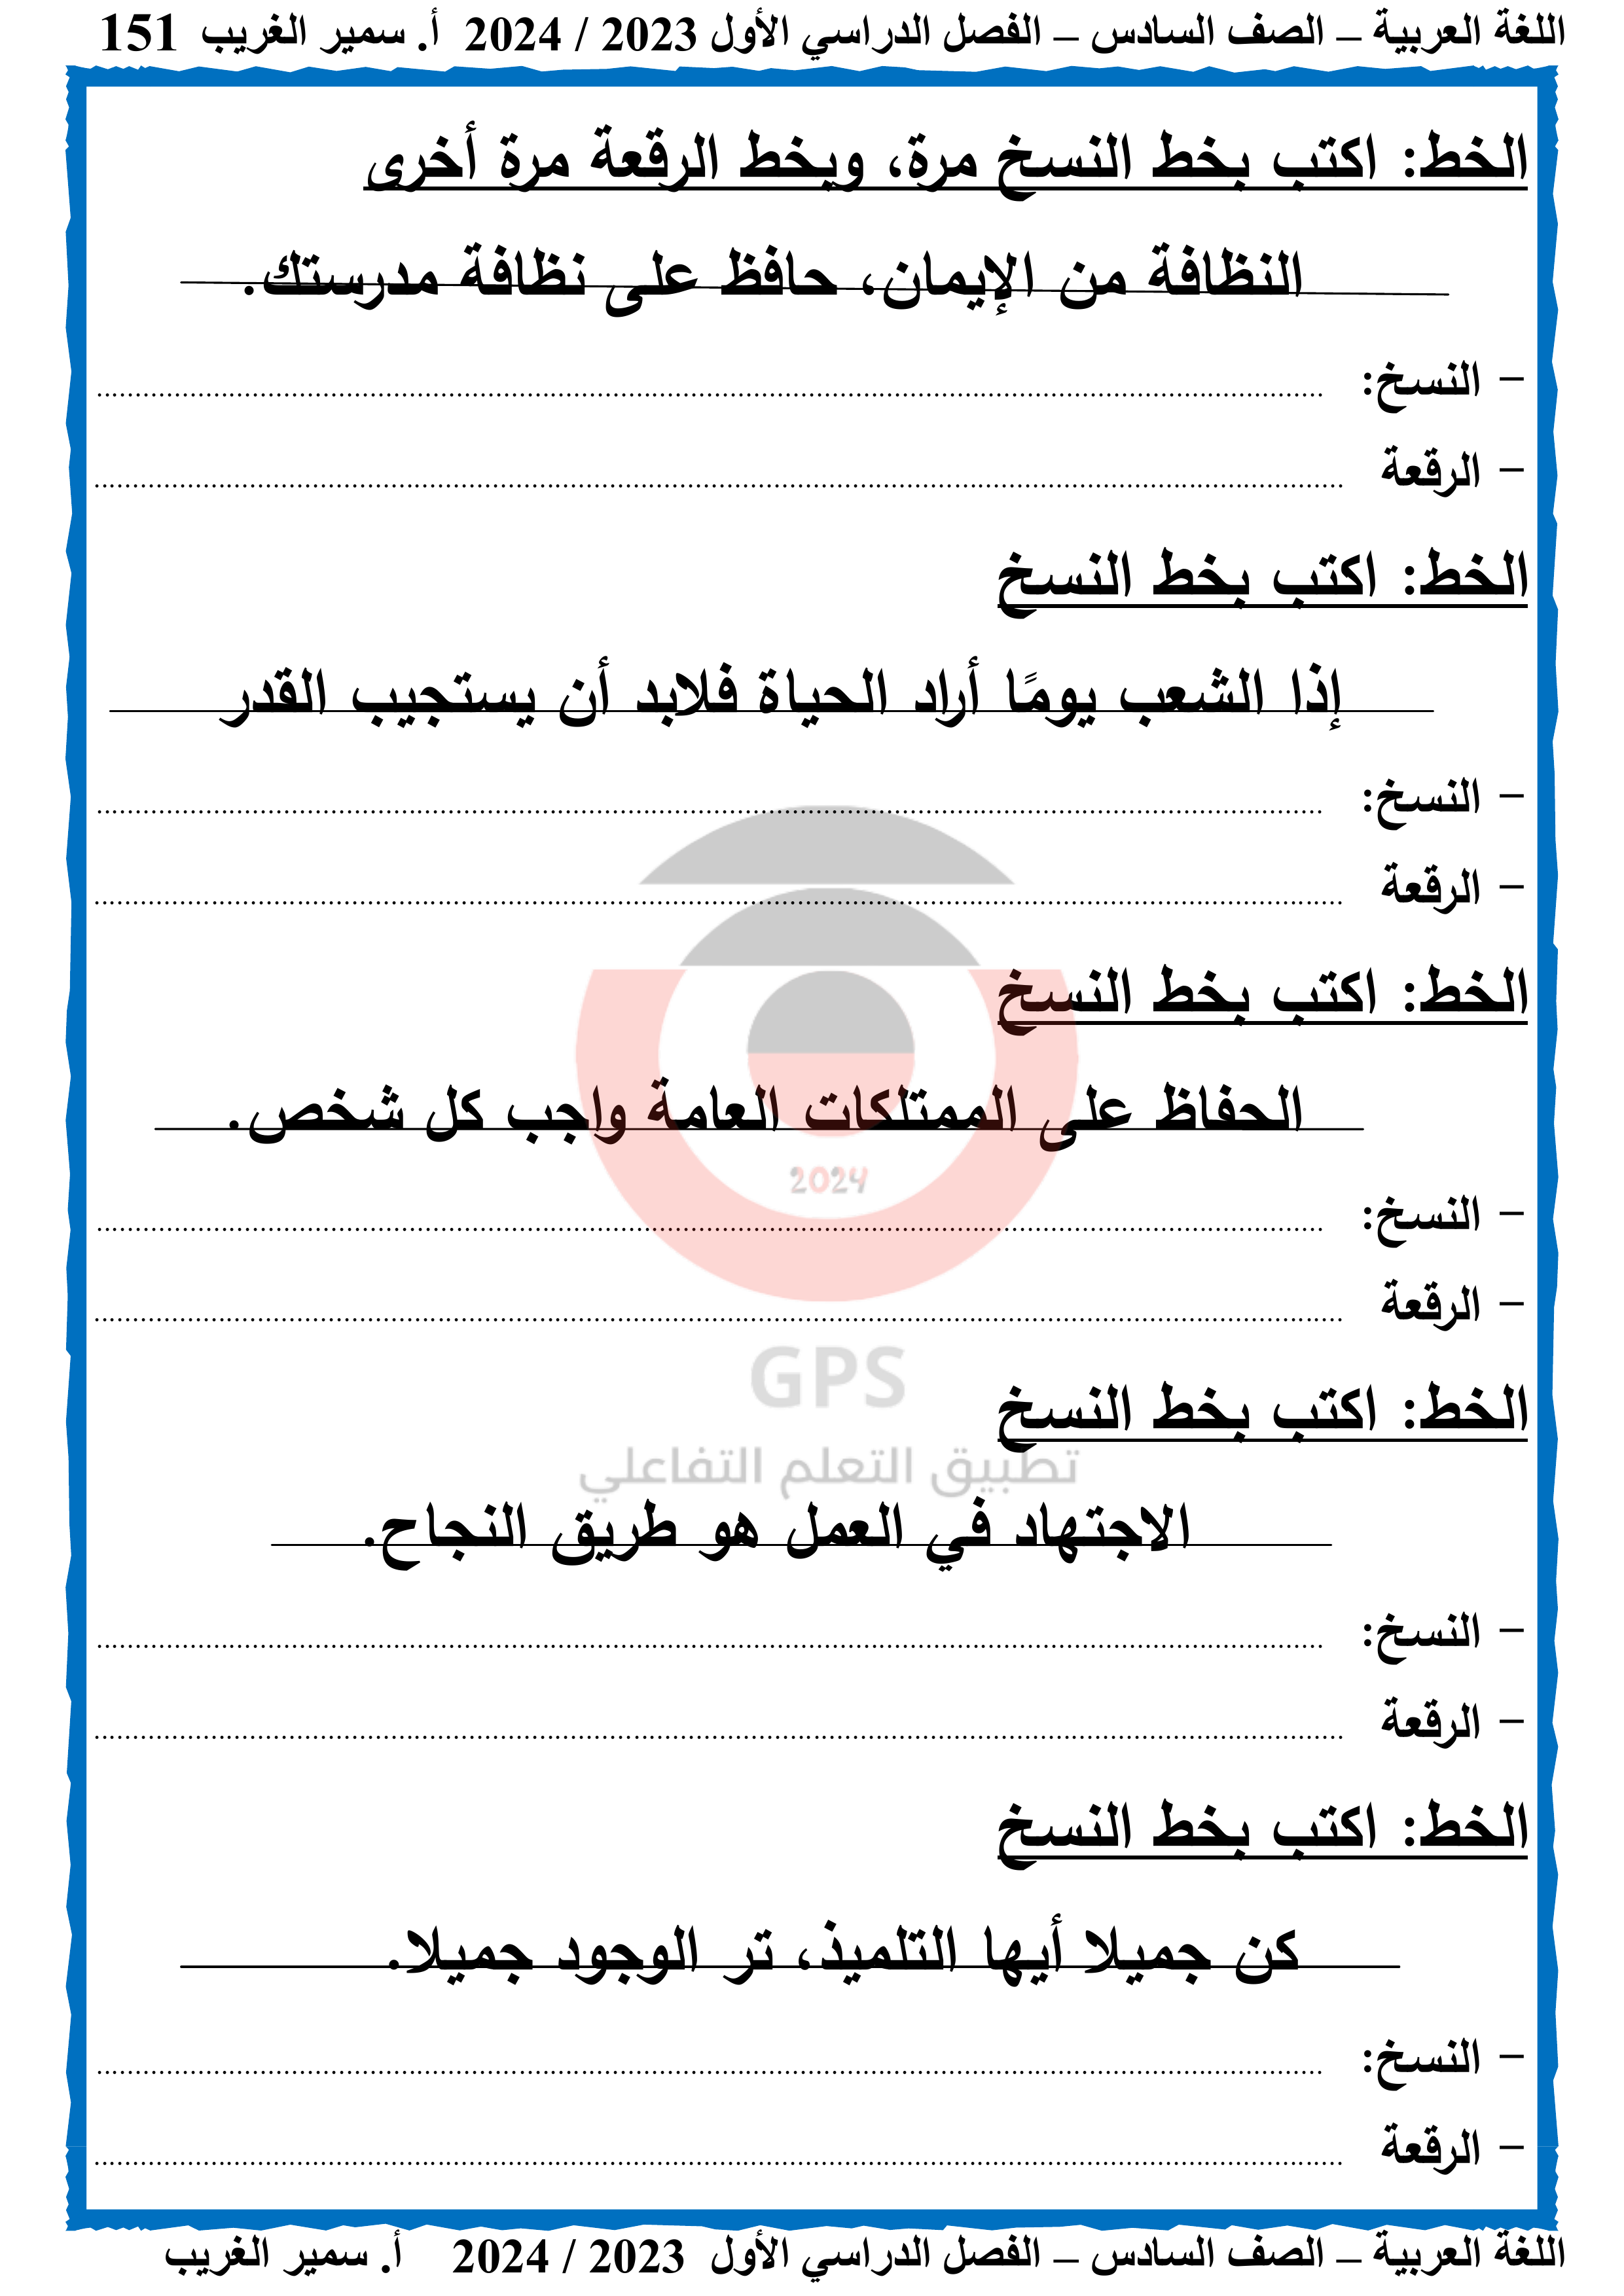 اللغة العربية – الصف السادس – الفصل الدراسي الأول 2023 / 2024 أ. سمير الغريب 151
الخط: اكتب بخط النسخ مرة، وبخط الرقعة مرة أخرى
النظافة من الإيمان، حافظ على نظافة مدرستك.
– النسخ: ........................................
– الرقعة ........................................
الخط: اكتب بخط النسخ
إذا الشعب يومًا أراد الحياة فلابد أن يستجيب القدر
– النسخ: ........................................
– الرقعة ........................................
الخط: اكتب بخط النسخ
الحفاظ على الممتلكات العامة واجب كل شخص.
2024
– النسخ: ........................................
– الرقعة ........................................
GPS
الخط: اكتب بخط النسخ
تطبيق التعلم التفاعلي
الاجتهاد في العمل هو طريق النجاح.
– النسخ: ........................................
– الرقعة ........................................
الخط: اكتب بخط النسخ
كن جميلا أيها التلميذ، تر الوجود جميلا.
– النسخ: ........................................
– الرقعة ........................................
اللغة العربية – الصف السادس – الفصل الدراسي الأول 2023 / 2024 أ. سمير الغريب